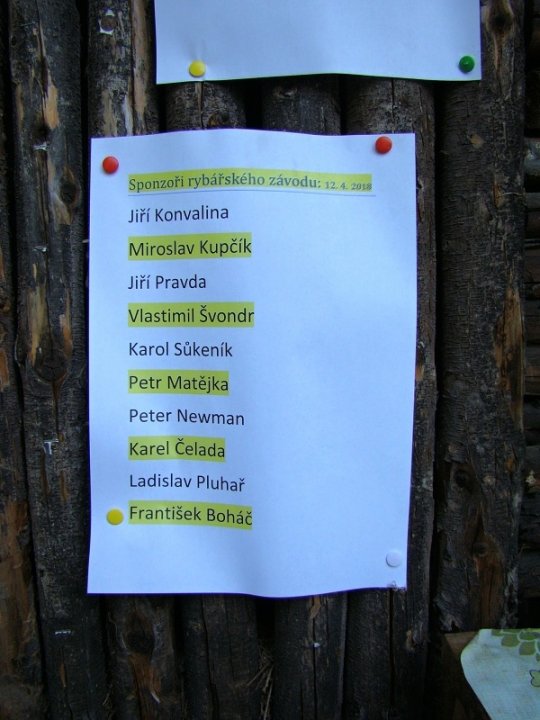 Sponzoři rybářského závodu: 12. 4. 2018
Jiří Konvalina
Miroslav Kupčík
Jiří Pravda
Vlastimil Švondr
Karol Sůkeník
Petr Matějka
Peter Newman
Karel Čelada
Ladislav Pluhař
František Boháč